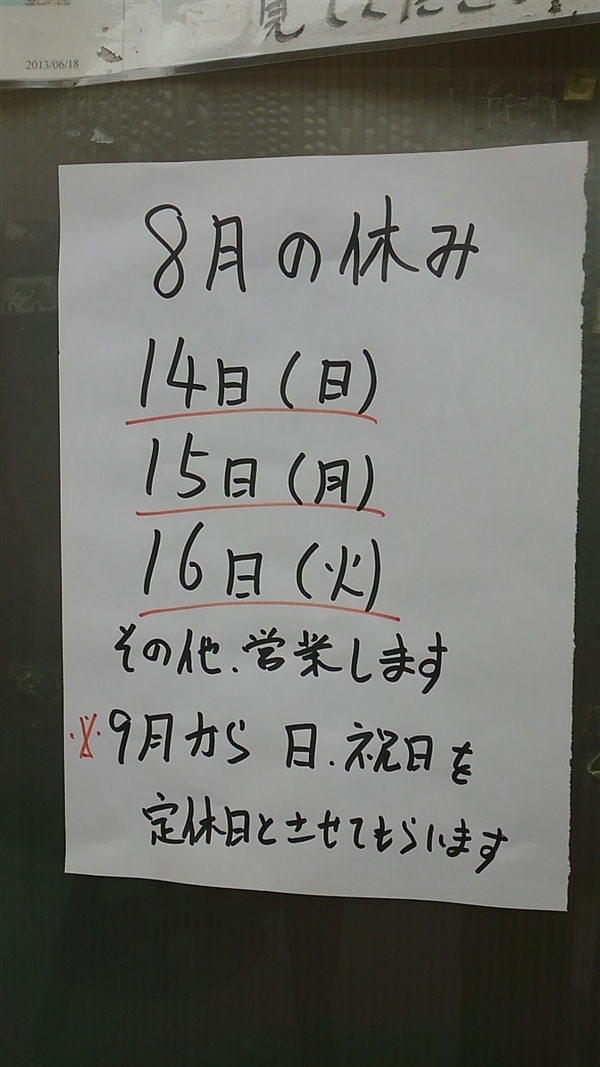 見てください
2013/06/18
8月の休み
14日(日)
15日(月)
16日(火)
その他、営業します
※9月から 日、祝日を
定休日とさせてもらいます